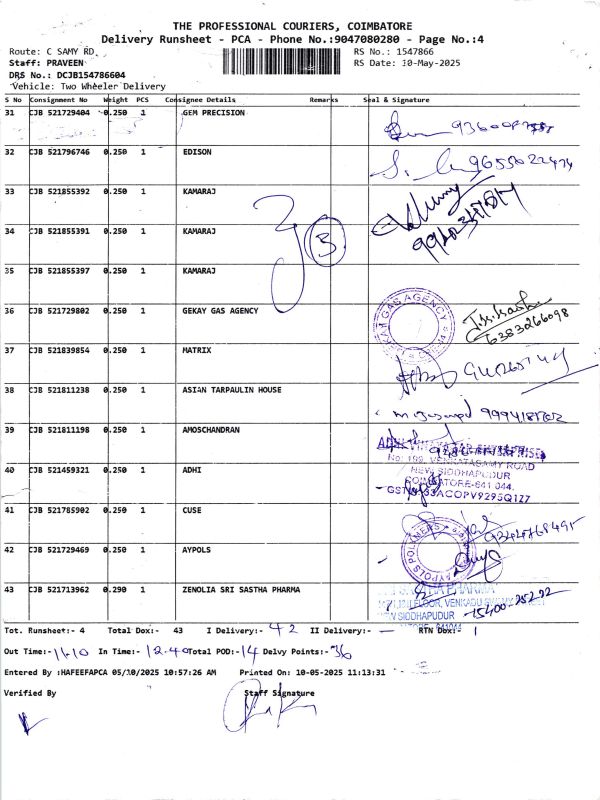 THE PROFESSIONAL COURIERS, COIMBATORE
Delivery Runsheet - PCA - Phone No.:9047080280 - Page No.:4
Route: C SAMY RD RS No.: 1547866
Staff: PRAVEEN RS Date: 10-May-2025
DRS No.: DCJB154786604
Vehicle: Two Wheeler Delivery
S No Consignment No Weight PCS Consignee Details Remarks Seal & Signature
31 CJB 521729404 0.250 1 GEM PRECISION
32 CJB 521796746 0.250 1 EDISON
33 CJB 521855392 0.250 1 KAMARAJ
34 CJB 521855391 0.250 1 KAMARAJ 3
35 CJB 521855397 0.250 1 KAMARAJ
36 CJB 521729802 0.250 1 GEKAY GAS AGENCY 6383266098
37 CJB 521839854 0.250 1 MATRIX
38 CJB 521811238 0.250 1 ASIAN TARPAULIN HOUSE
39 CJB 521811198 0.250 1 AMOSCHANDRAN
No: 199, VENKATASAMY ROAD
40 CJB 521459321 0.250 1 ADHI NEW SIDDHAPUDUR
COIMBATORE-641 044.
GST 33ACOPV9295Q1Z7
41 CJB 521785902 0.250 1 CUSE
42 CJB 521729469 0.250 1 AYPOLS AYPOLS POLYMERS
43 CJB 521713962 0.290 1 ZENOLIA SRI SASTHA PHARMA
NEW SIDDHAPUDUR
Tot. Runsheet:- 4 Total Dox:- 43 I Delivery:- 42 II Delivery:- — RTN Dox:- 1
Out Time:- 11.10 In Time:- 12.40 Total POD:- 14 Delvy Points:- 36
Entered By :HAFEEFAPCA 05/10/2025 10:57:26 AM Printed On: 10-05-2025 11:13:31
Verified By Staff Signature